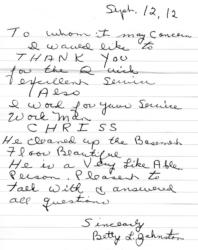 Sept. 12, 12
To whom it may Concern
I would like to
THANK YOU
for the Quick
Excellent Service
Also
I work for your Service
Work Man
CHRISS
He cleaned up the Basement
Floor Beautiful
He is a Very Like Able
Person. Pleasent to
talk with & answered
all questions
Sincearly
Betty L. Johnston